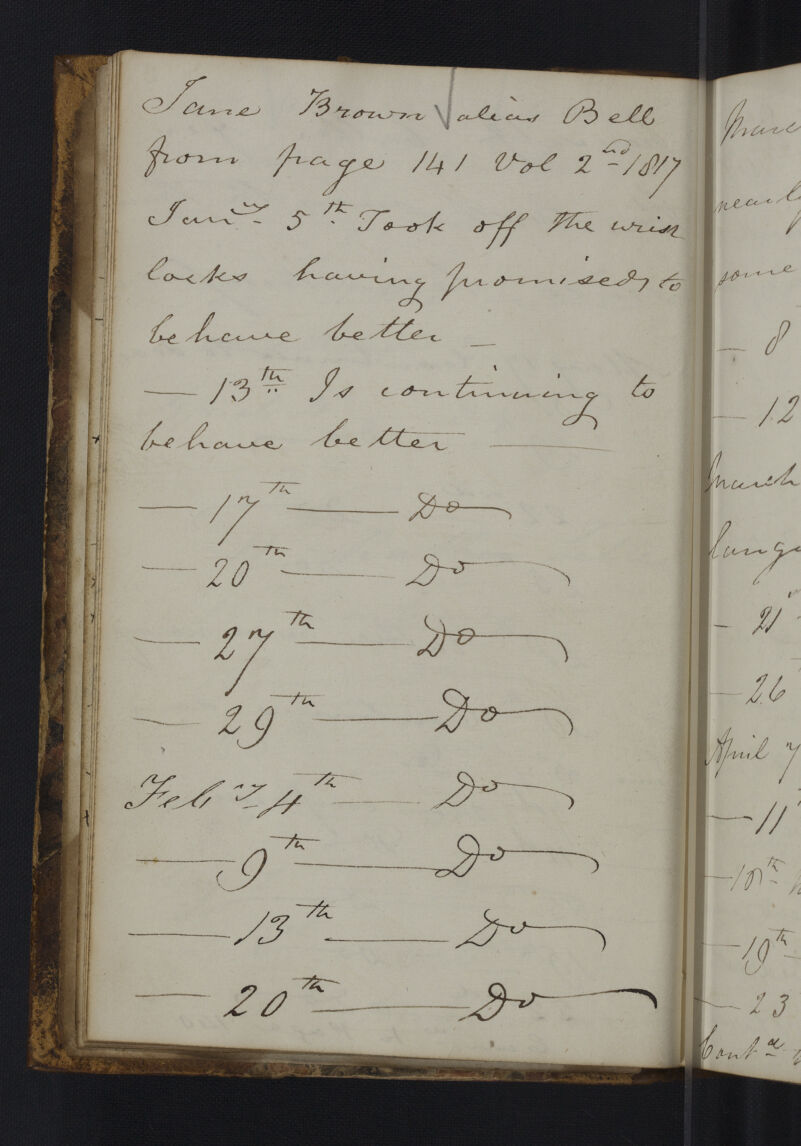 Jane Brown alias Bell
from page 141 Vol 2nd 1817
Jany 5th Took off the wrist
locks having promised to
behave better —
— 13th Is continuing to
behave better —
— 17th — Do
— 20th — Do
— 27th — Do
— 29th — Do
Feby 4th — Do
— 9th — Do
— 13th — Do
— 20th — Do
nearly
some
— 8
— 12
March
— 21
— 26
April 7
— 11
— 19th
— 23